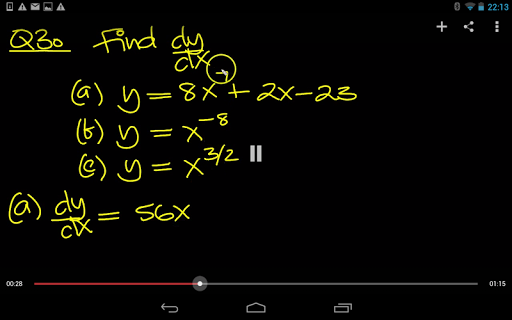 22:13
Q30 Find dy/dx
(a) y = 8x⁷ + 2x - 23
(b) y = x⁻⁸
(c) y = x^3/2
(a) dy/dx = 56x
00:28 01:15